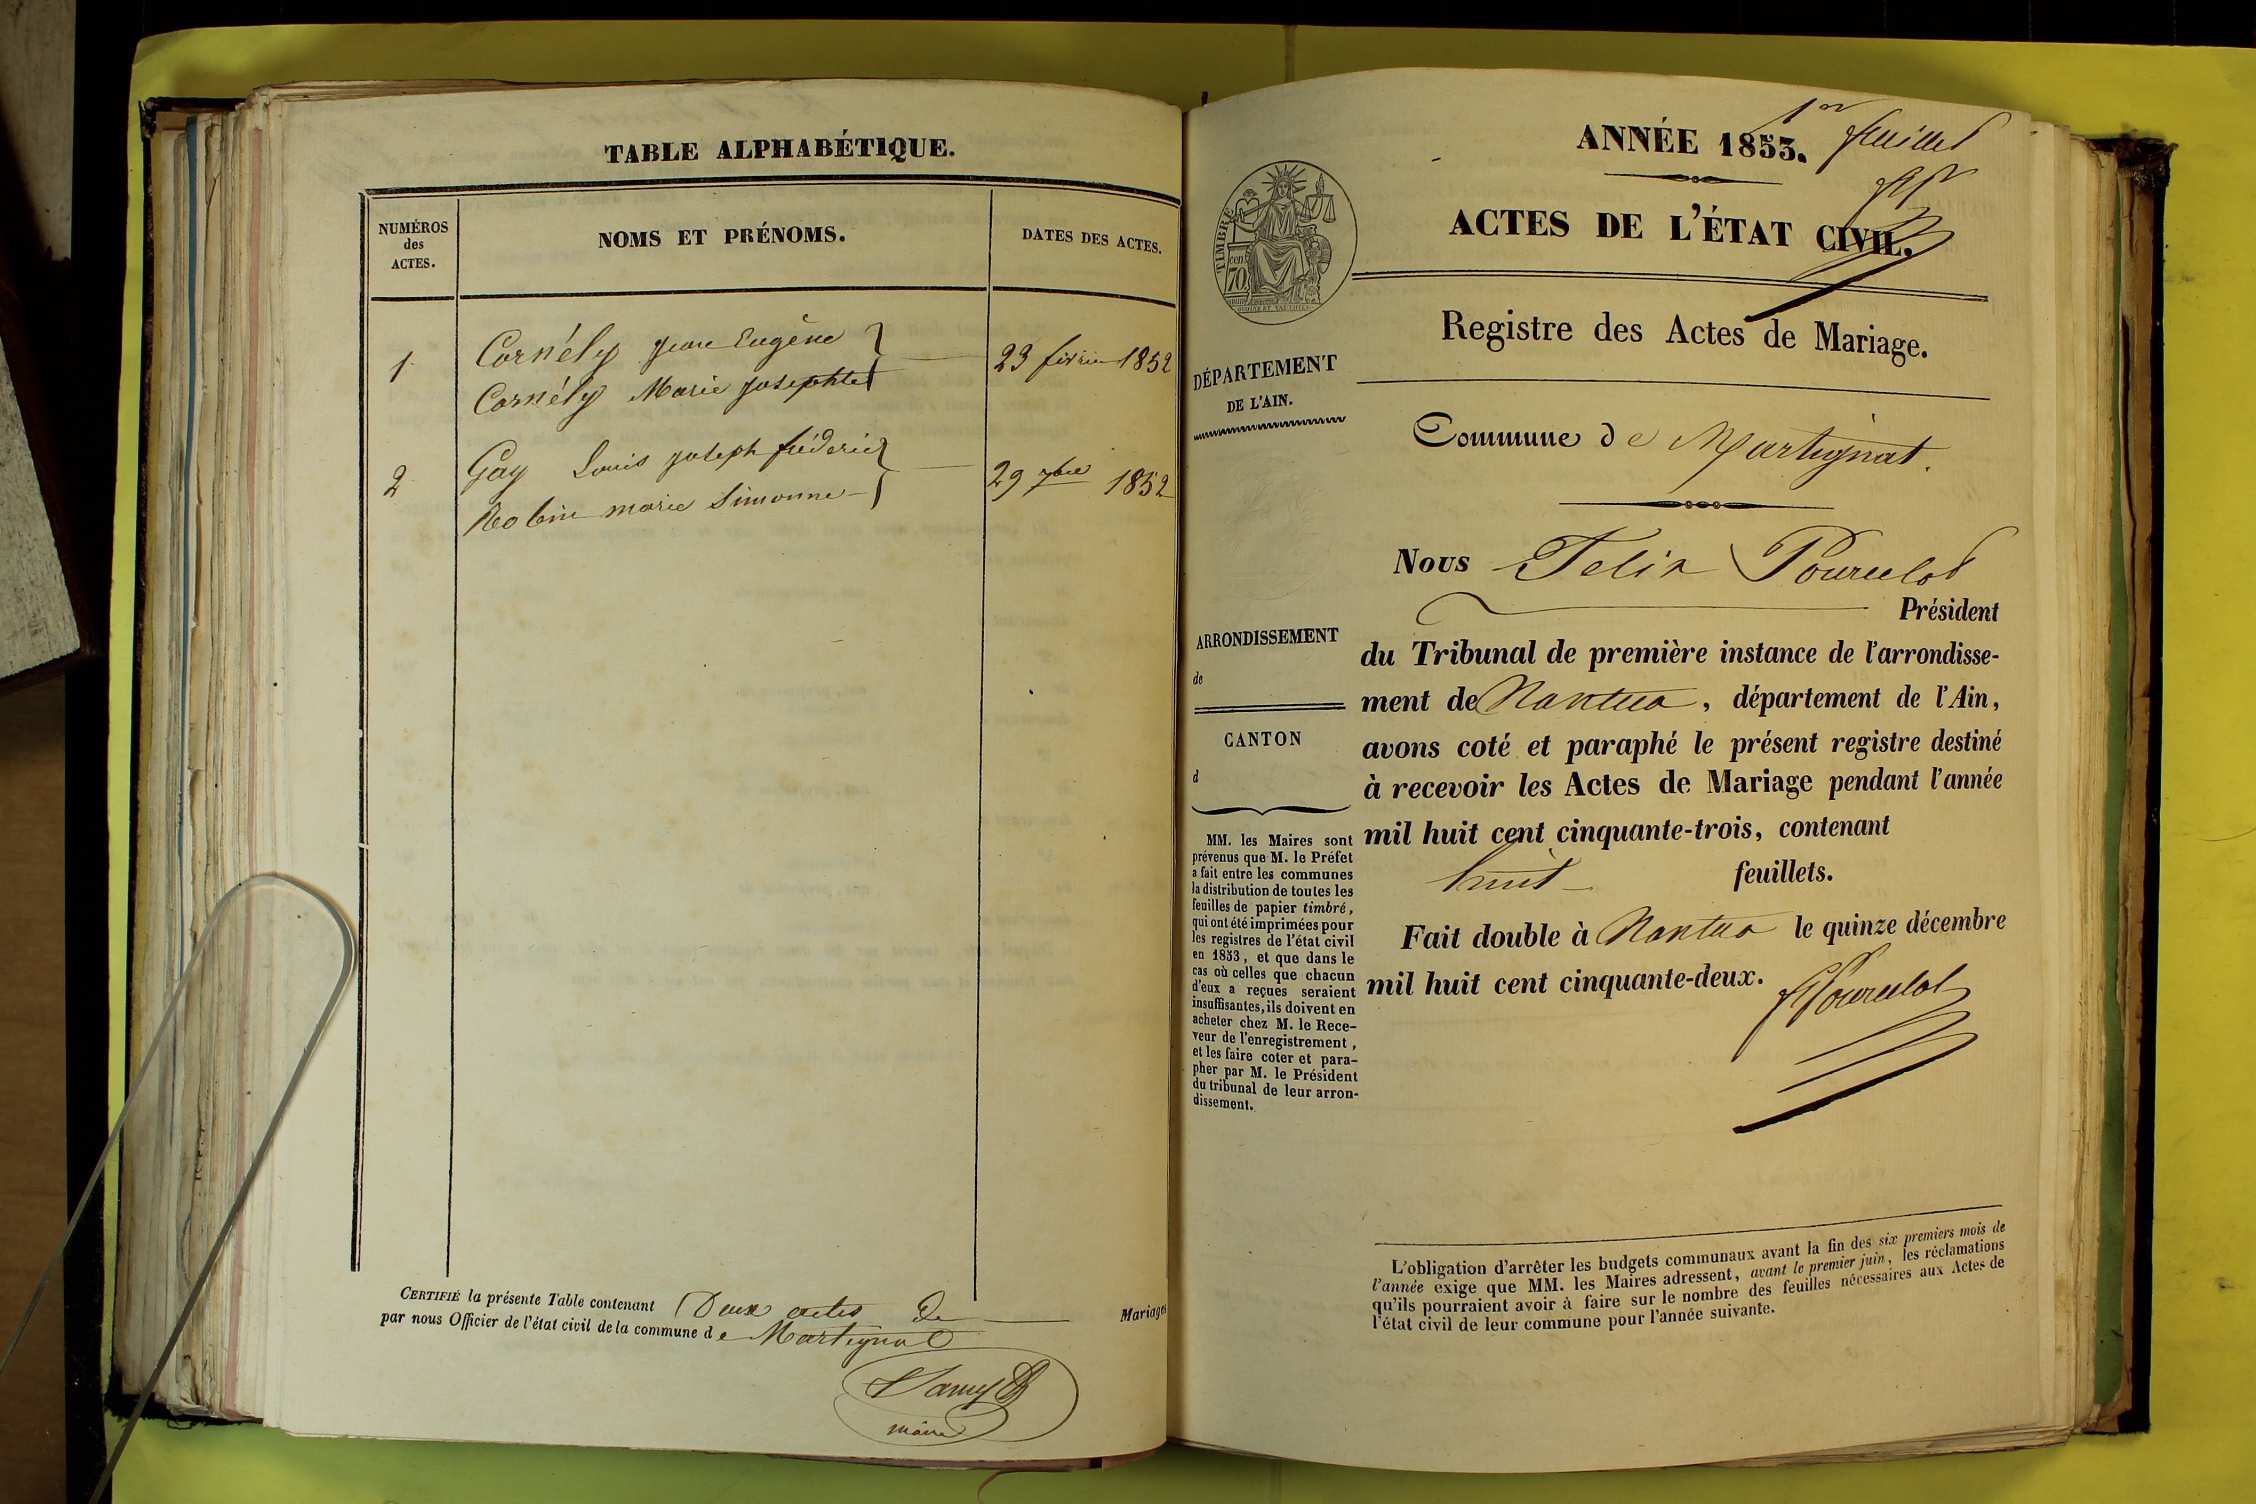 TABLE ALPHABÉTIQUE.
NUMÉROS
des
ACTES.
NOMS ET PRÉNOMS.
DATES DES ACTES.
1
Cornély Jean Eugène
Cornély Marie Josephte
23 février 1852
2
Gay Louis Joseph fréderic
Robin marie Simonne
29 7bre 1852
CERTIFIÉ la présente Table contenant Deux actes De Mariages
par nous Officier de l'état civil de la commune de Martignat
maire
1er feuillet
ANNÉE 1853.
ACTES DE L'ÉTAT CIVIL.
TIMBRE
70
cent
Registre des Actes de Mariage.
DÉPARTEMENT
DE L'AIN.
Commune de Martignat.
Nous Felix Pourcelot
Président
du Tribunal de première instance de l'arrondisse-
ment de Nantua, département de l'Ain,
avons coté et paraphé le présent registre destiné
à recevoir les Actes de Mariage pendant l'année
mil huit cent cinquante-trois, contenant
huit feuillets.
Fait double à Nantua le quinze décembre
mil huit cent cinquante-deux.
FPourcelot
ARRONDISSEMENT
de
CANTON
d
MM. les Maires sont
prévenus que M. le Préfet
a fait entre les communes
la distribution de toutes les
feuilles de papier timbré,
qui ont été imprimées pour
les registres de l'état civil
en 1853, et que dans le
cas où celles que chacun
d'eux a reçues seraient
insuffisantes, ils doivent en
acheter chez M. le Rece-
veur de l'enregistrement,
et les faire coter et para-
pher par M. le Président
du tribunal de leur arron-
dissement.
L'obligation d'arrêter les budgets communaux avant la fin des six premiers mois de
l'année exige que MM. les Maires adressent, avant le premier juin, les réclamations
qu'ils pourraient avoir à faire sur le nombre des feuilles nécessaires aux Actes de
l'état civil de leur commune pour l'année suivante.